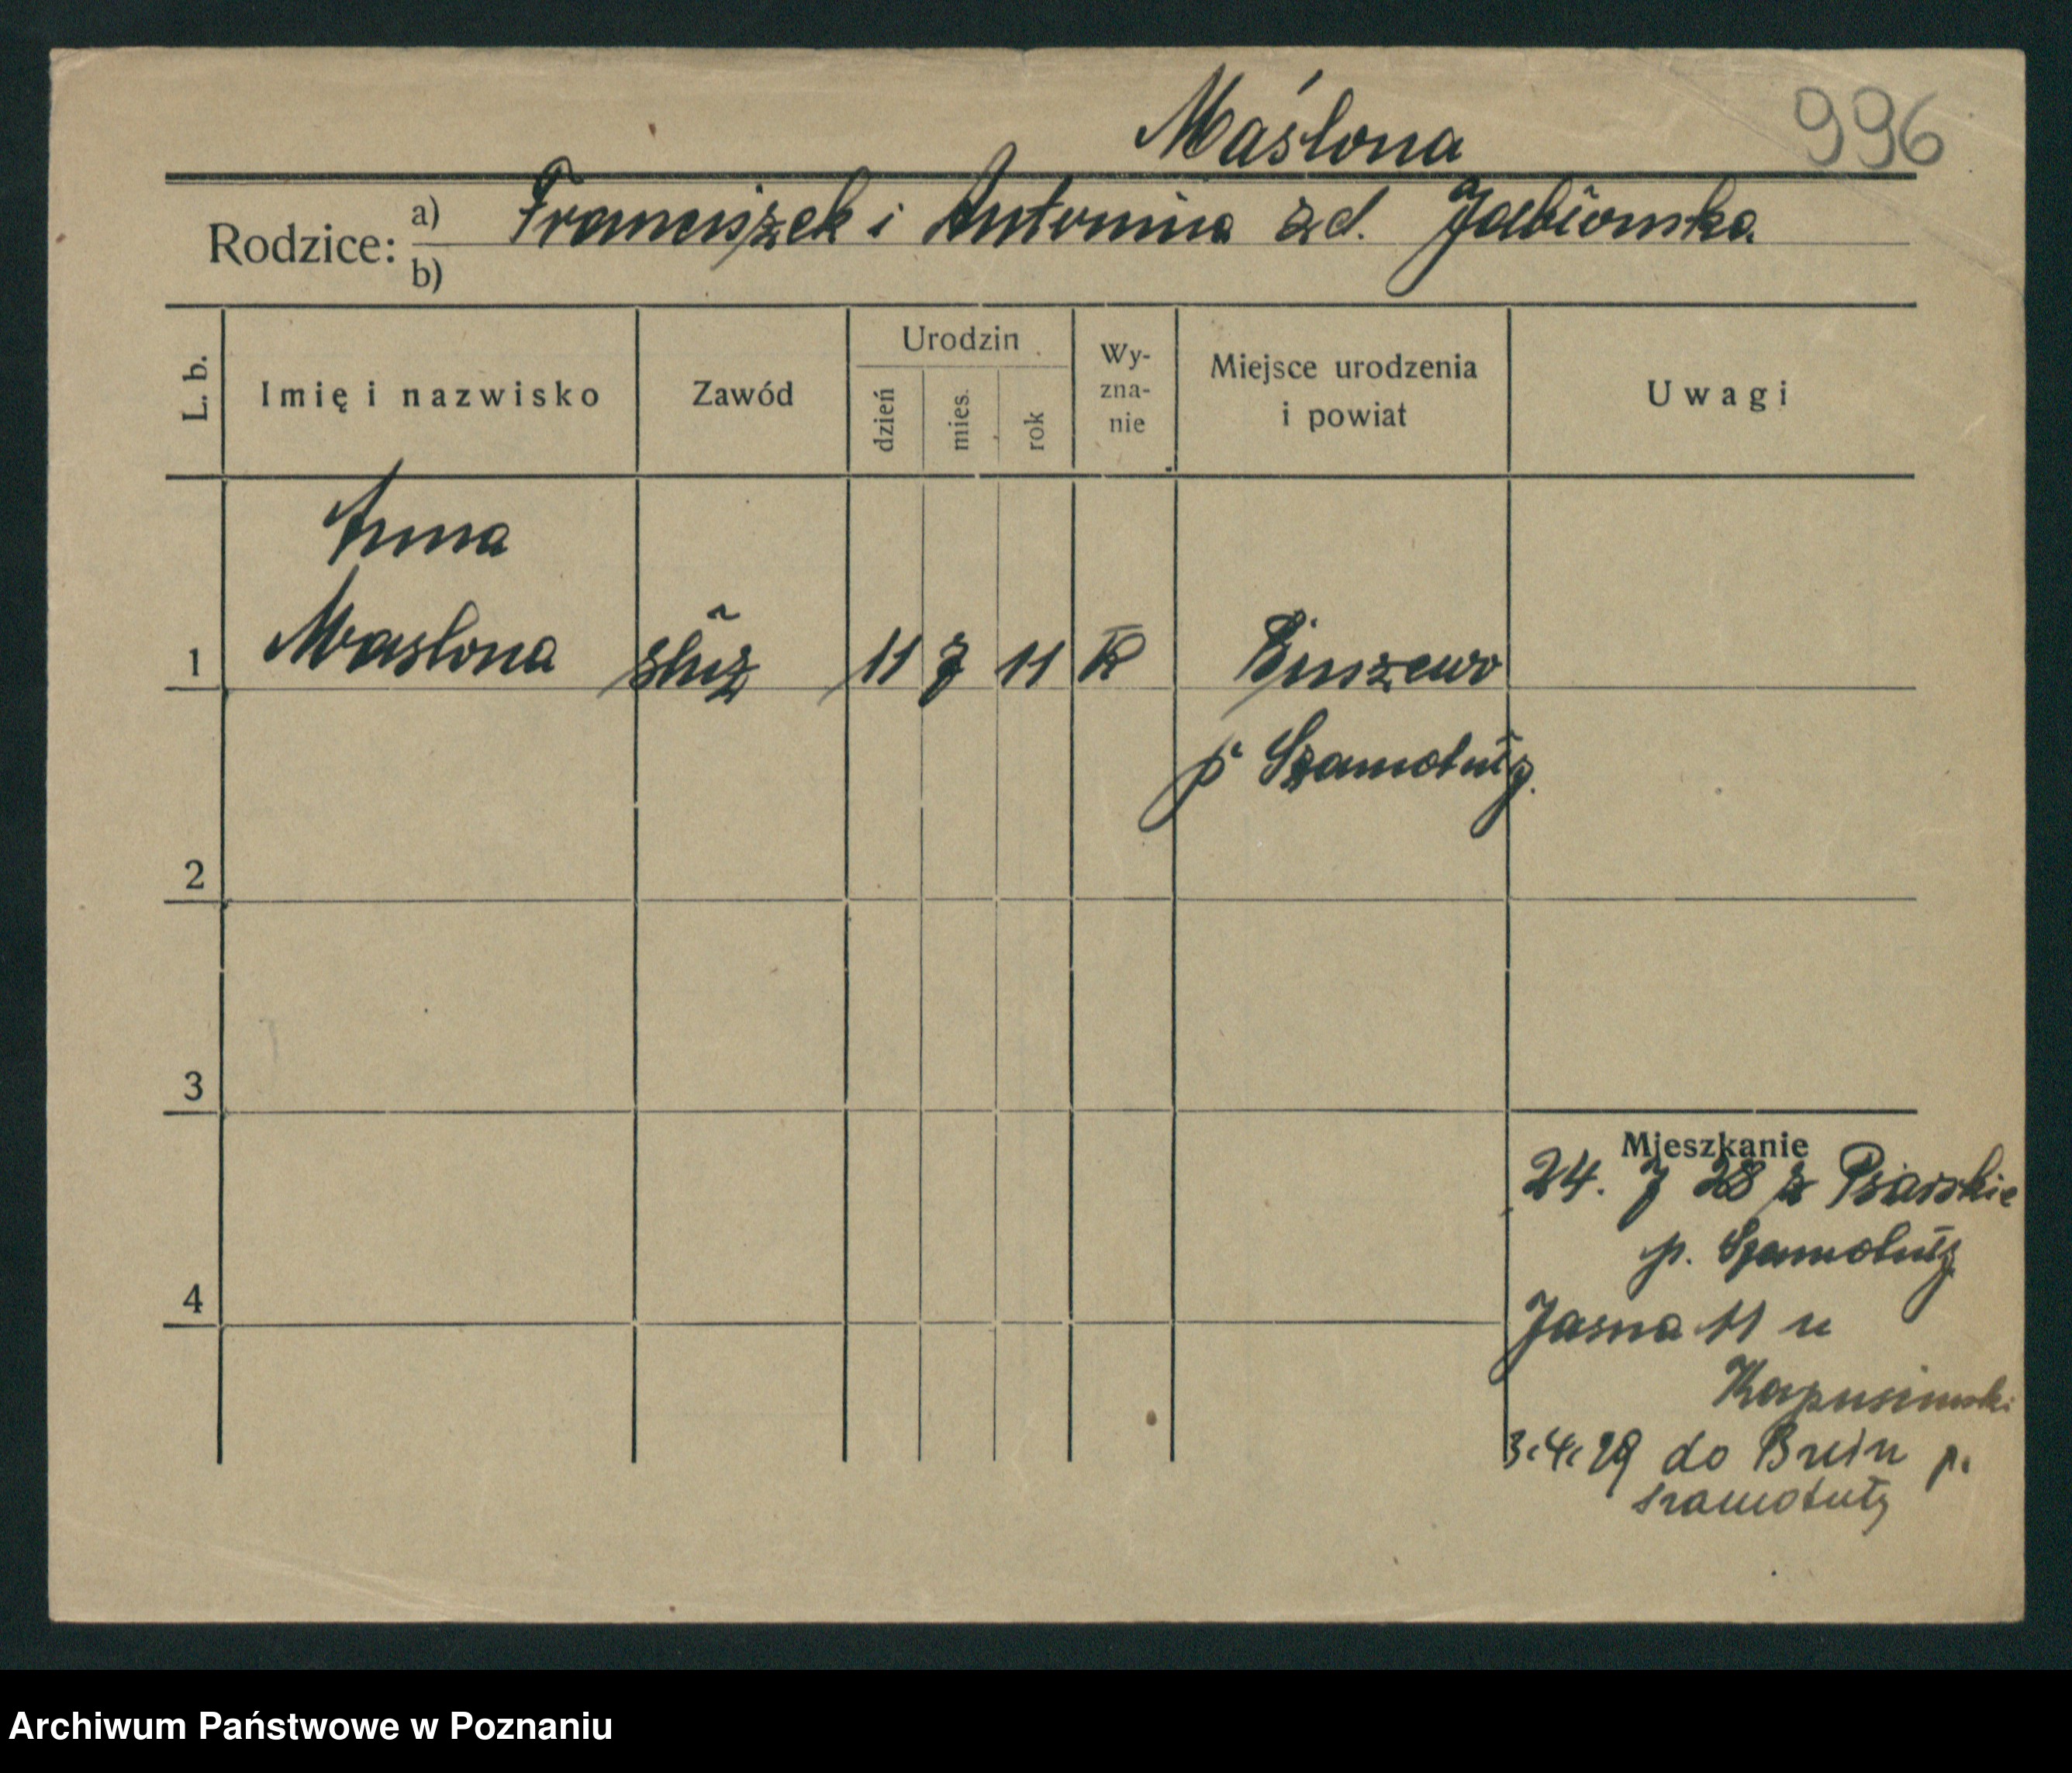 Maślona
996
Rodzice:
a) Franciszek i Antonina zd. Jabłonska
b)
L. b.
Imię i nazwisko
Zawód
Urodzin
dzień
mies.
rok
Wy-
zna-
nie
Miejsce urodzenia
i powiat
Uwagi
Anna
1 Maslona służ 11 7 11 R
p Szamotuły.
2
3
4
Mieszkanie
24. 7 28 z Psarskie
p. Szamotuły
Jasna 11 u
3.4.29 do p.
Szamotuły
Archiwum Państwowe w Poznaniu